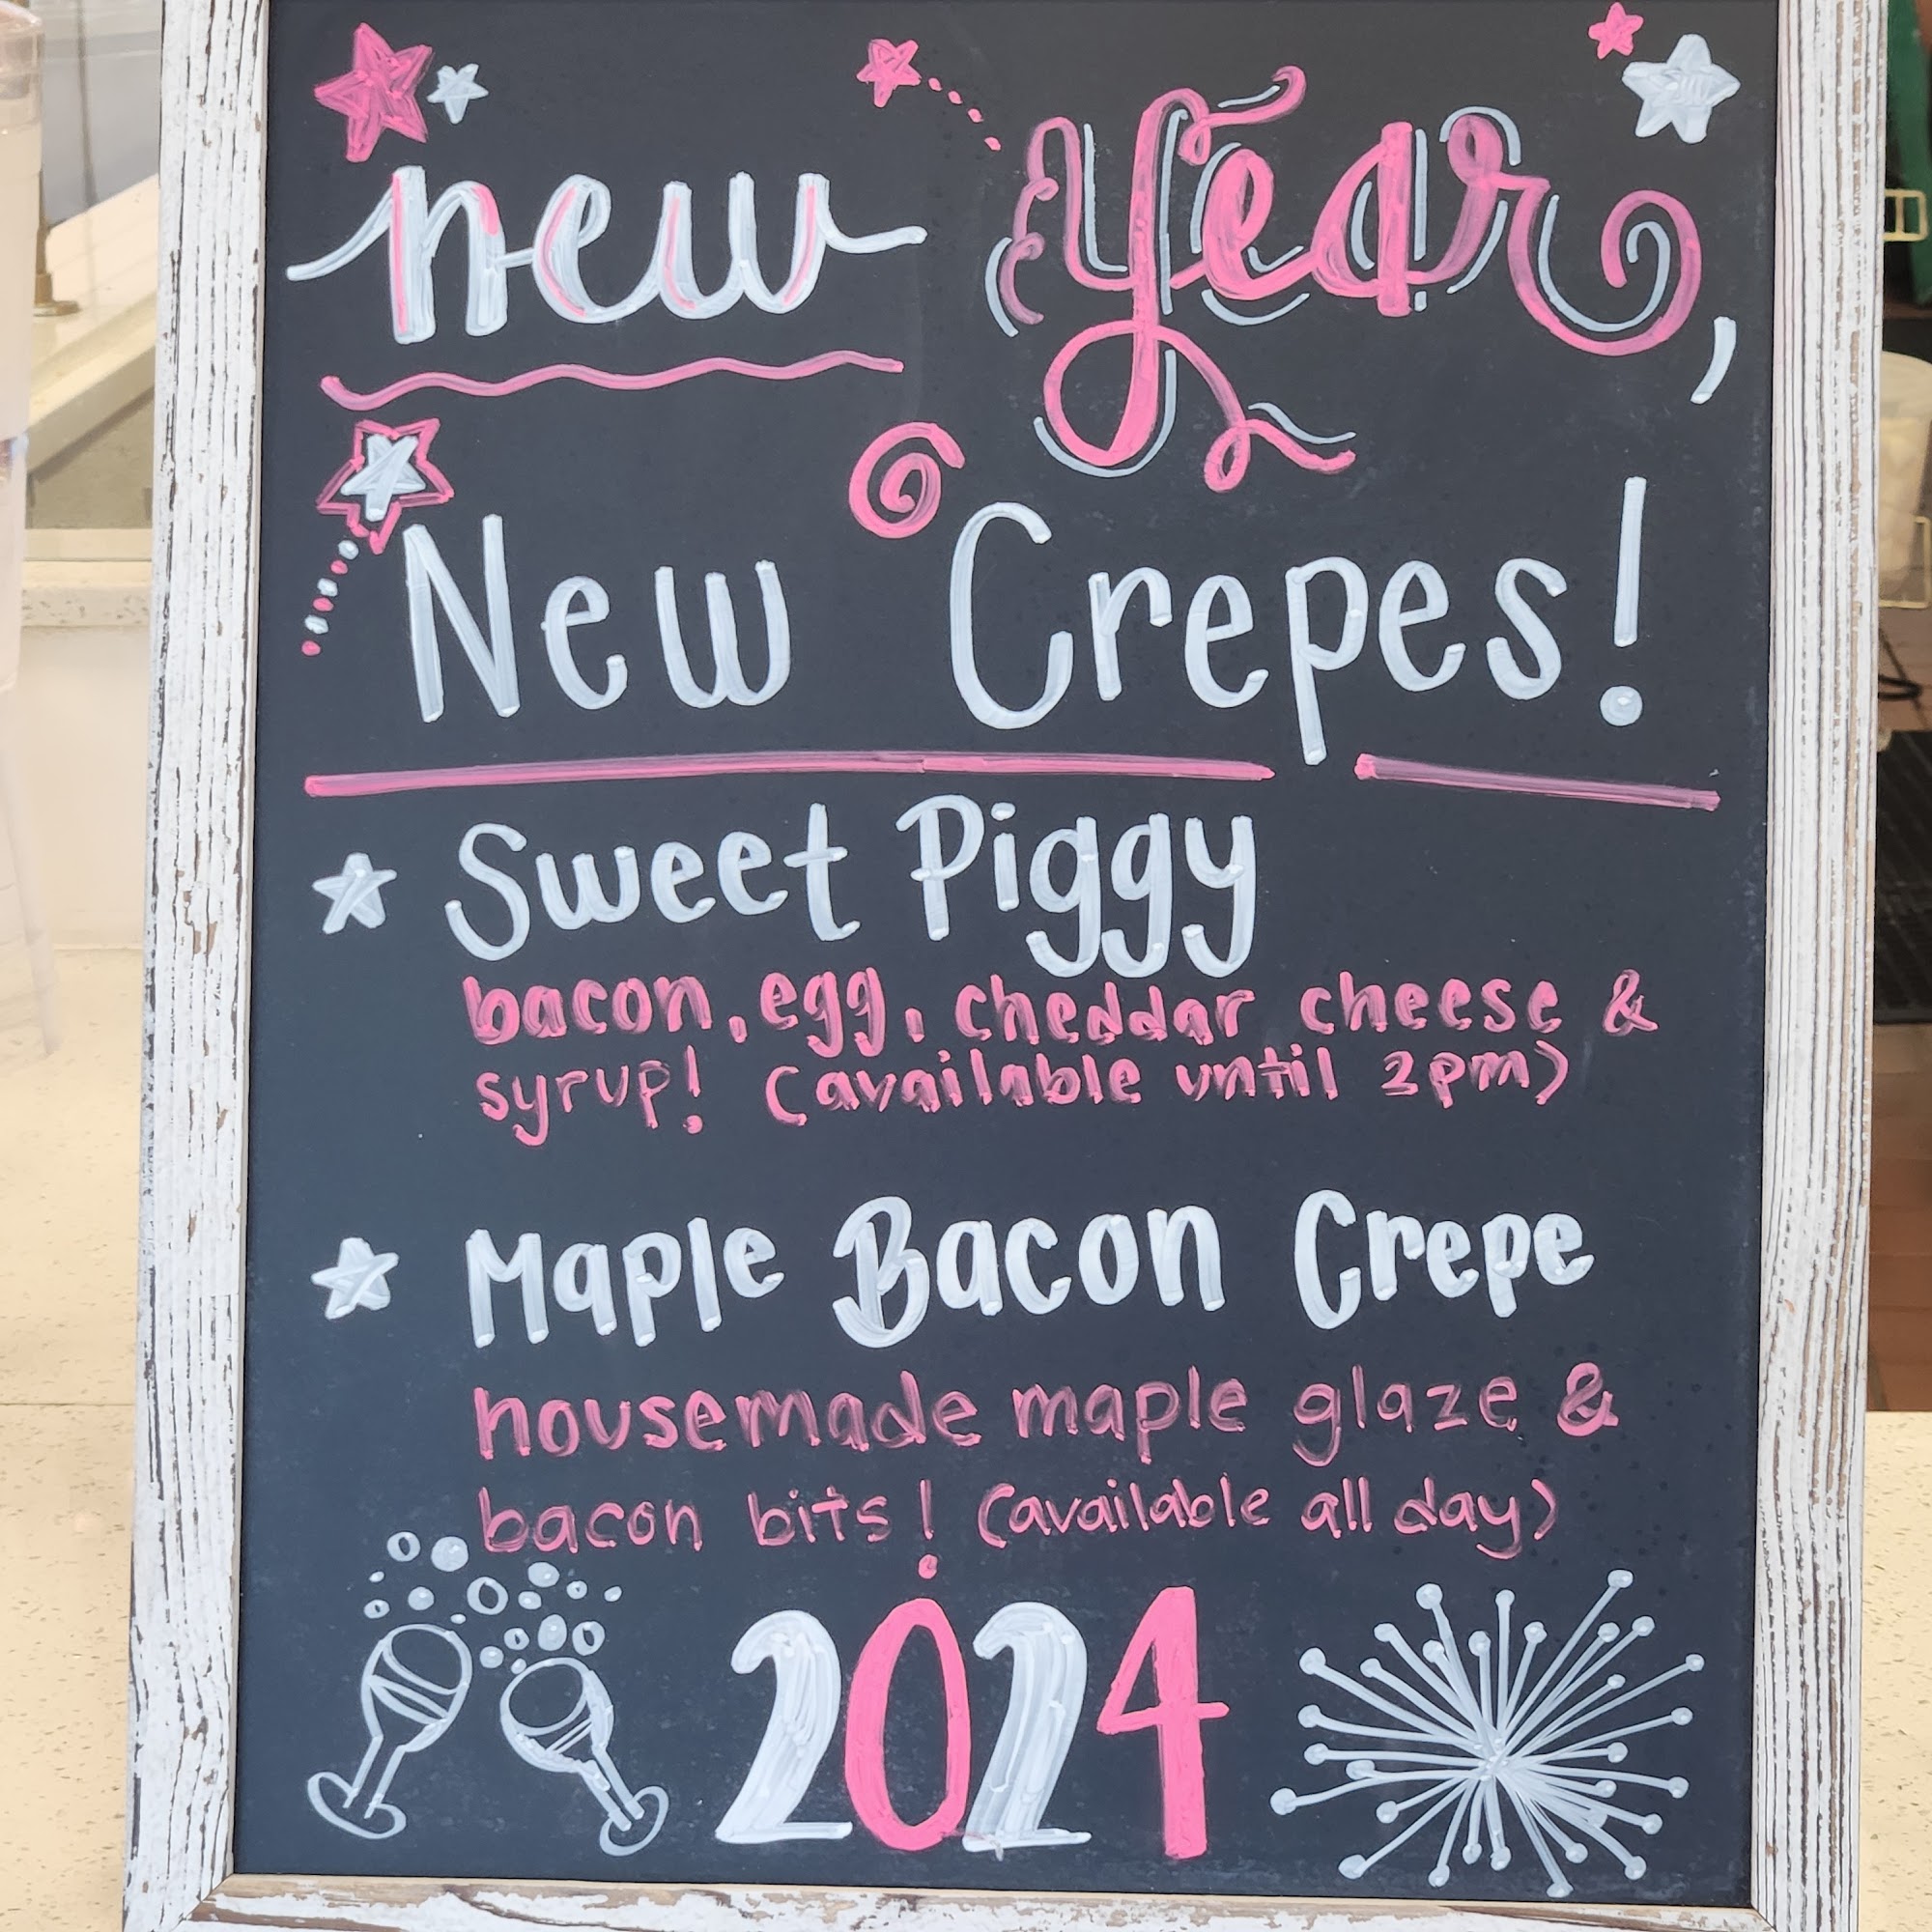 new year,
New Crepes!
Sweet Piggy
bacon, egg, cheddar cheese &
syrup! (available until 2pm)
Maple Bacon Crepe
housemade maple glaze &
bacon bits! (available all day)
2024